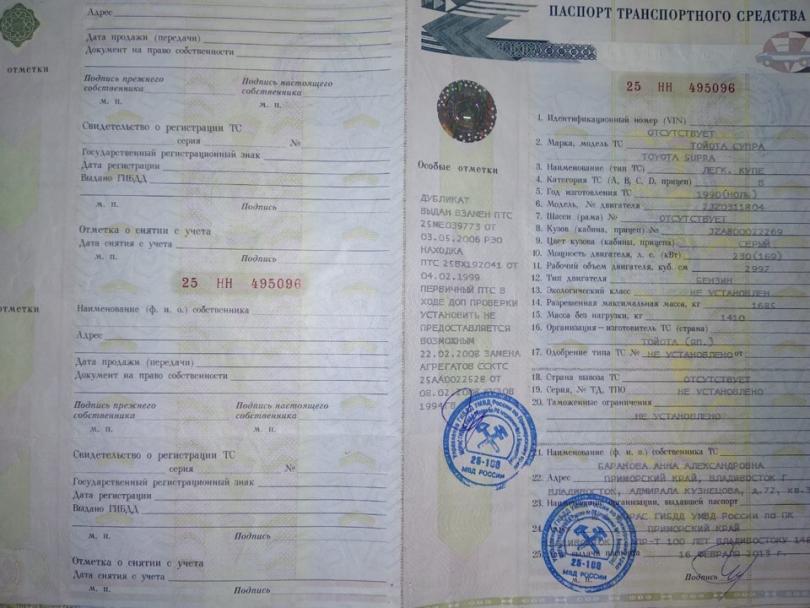 Адрес
Дата продажи (передачи)
Документ на право собственности
отметки
Подпись прежнего собственника
Подпись настоящего собственника
м. п.
м. п.
Свидетельство о регистрации ТС
серия №
Государственный регистрационный знак
Дата регистрации
Выдано ГИБДД
м. п.
Подпись
Отметка о снятии с учета
Дата снятия с учета
м. п.
Подпись
25 НН 495096
отметки
Наименование (ф. и. о.) собственника
Адрес
Дата продажи (передачи)
Документ на право собственности
Подпись прежнего собственника
Подпись настоящего собственника
м. п.
м. п.
Свидетельство о регистрации ТС
серия №
Государственный регистрационный знак
Дата регистрации
Выдано ГИБДД
м. п.
Подпись
Отметка о снятии с учета
Дата снятия с учета
м. п.
Подпись
ПАСПОРТ ТРАНСПОРТНОГО СРЕДСТВА
25 НН 495096
Особые отметки
ДУБЛИКАТ
ВЫДАН ВЗАМЕН ПТС
25МЕ039773 ОТ
03.05.2006 РЭО
НАХОДКА
ПТС 25ВХ192041 ОТ
04.02.1999
ПЕРВИЧНЫЙ ПТС В
ХОДЕ ДОП ПРОВЕРКИ
УСТАНОВИТЬ НЕ
ПРЕДОСТАВЛЯЕТСЯ
ВОЗМОЖНЫМ
22.02.2008 ЗАМЕНА
АГРЕГАТОВ ССКТС
25АА002528 ОТ
КУЗОВ
1. Идентификационный номер (VIN)
ОТСУТСТВУЕТ
2. Марка, модель ТС ТОЙОТА СУПРА
TOYOTA SUPRA
3. Наименование (тип ТС) ЛЕГК. КУПЕ
4. Категория ТС (А, В, С, D, прицеп) В
5. Год изготовления ТС 1990(НОЛЬ)
6. Модель, № двигателя 2JZ0311804
7. Шасси (рама) № ОТСУТСТВУЕТ
8. Кузов (кабина, прицеп) № JZA800022269
9. Цвет кузова (кабины, прицепа) СЕРЫЙ
10. Мощность двигателя, л. с. (кВт) 230(169)
11. Рабочий объем двигателя, куб. см 2997
12. Тип двигателя БЕНЗИН
13. Экологический класс НЕ УСТАНОВЛЕН
14. Разрешенная максимальная масса, кг 1685
15. Масса без нагрузки, кг 1410
16. Организация–изготовитель ТС (страна)
ТОЙОТА (ЯП.)
17. Одобрение типа ТС № НЕ УСТАНОВЛЕНО от
18. Страна вывоза ТС ОТСУТСТВУЕТ
19. Серия, № ТД, ТПО НЕ УСТАНОВЛЕНО
20. Таможенные ограничения
НЕ УСТАНОВЛЕНО
21. Наименование (ф. и. о.) собственника ТС
БАРАНОВА АННА АЛЕКСАНДРОВНА
22. Адрес ПРИМОРСКИЙ КРАЙ, ВЛАДИВОСТОК Г
ВЛАДИВОСТОК, АДМИРАЛА КУЗНЕЦОВА, д.72, кв.
23. организации, выдавшей паспорт
ГИБДД УМВД России по ПК
24. ПРИМОРСКИЙ КРАЙ
ПР-Т 100 ЛЕТ ВЛАДИВОСТОКУ
25. 16 ФЕВРАЛЯ 2013 г.
Подпись
25-108
МВД РОССИИ
25-108
МВД РОССИИ
м. п.